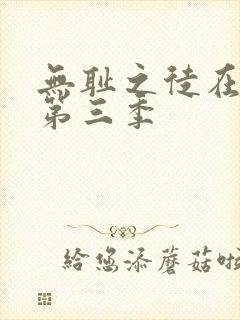 無耻之徒在
第三季
給您添蘑菇啦